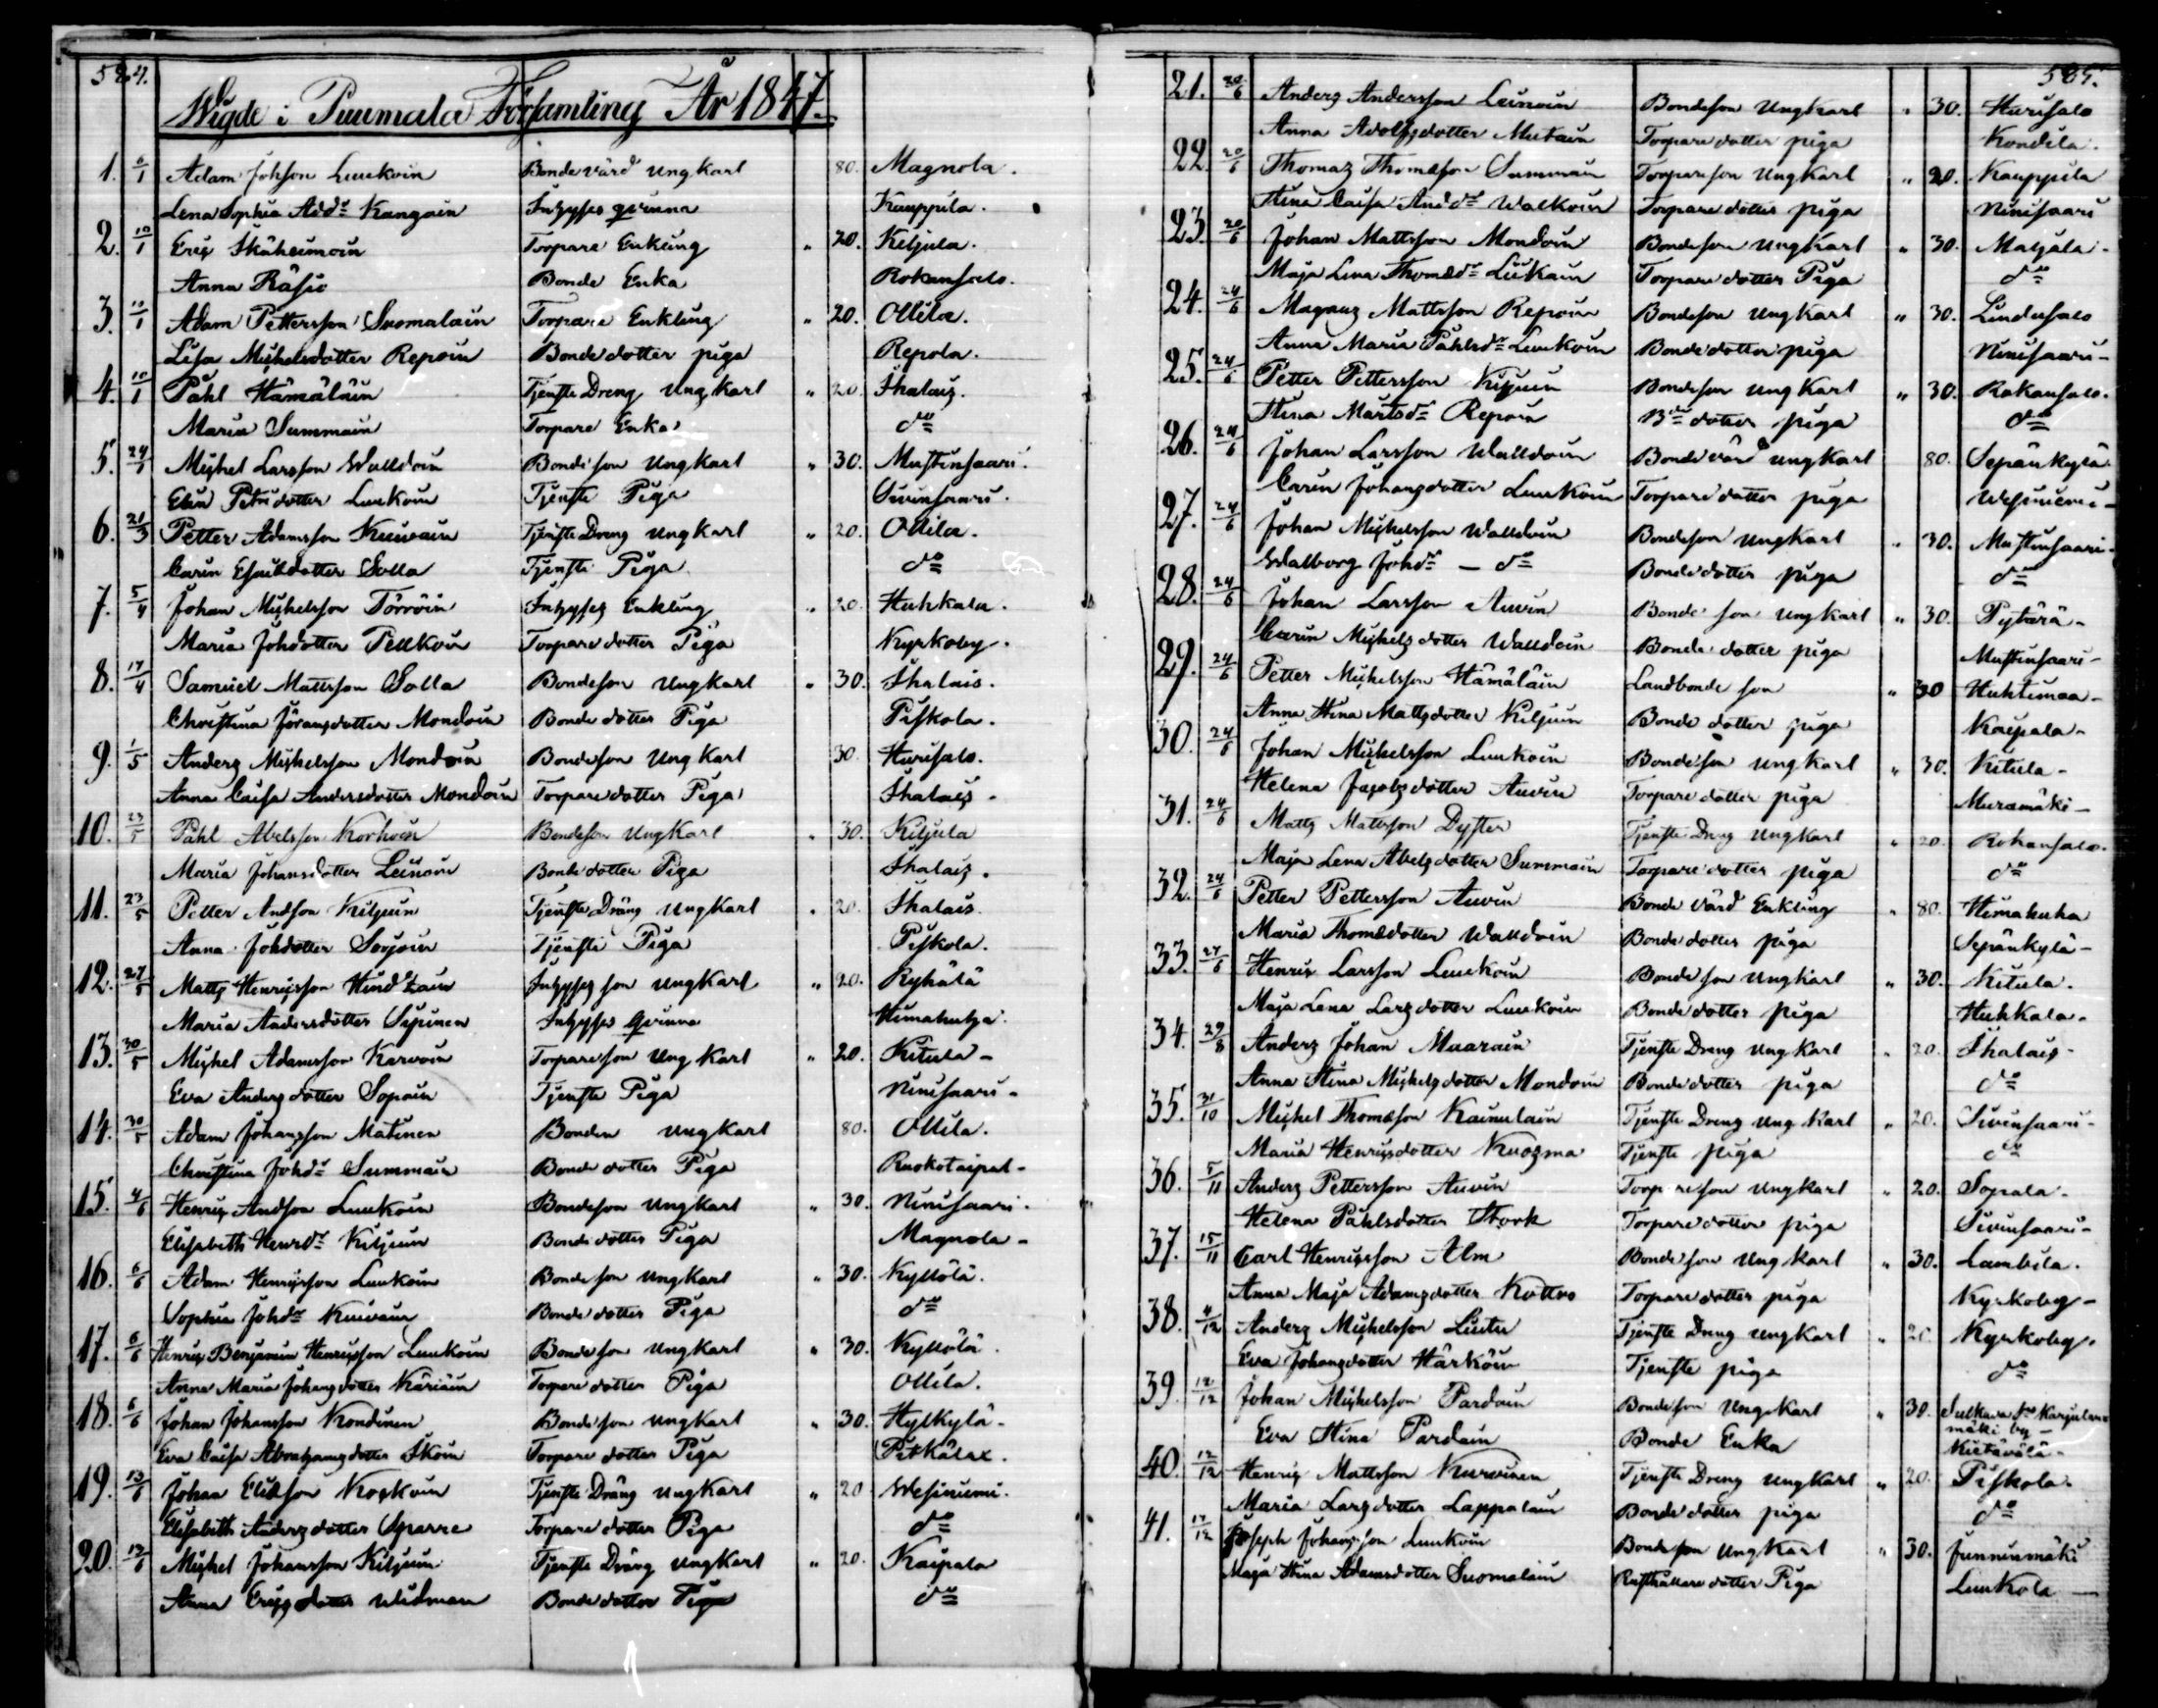 584.
Wigde i Puumala Församling År 1847.
1. 6/1 Adam Johsson Luukoin Bonde värd Ungkarl 80. Magnola.
Lena Sophia Add:r Kangain Inhyses qvinna Kauppila.
2. 10/1 Eriq Ikäheimoin Torpare Enkling " 20. Kiljula.
Anna Räsic Bonde Enka Rokansalo.
3. 10/1 Adam Pettersson Suomalain Torpare Enkling " 20. Ollila.
Lisa Michelsdotter Repoin Bonde dotter piga Repola.
4. 10/1 Påhl Hämäläin Tjenste Dreng Ungkarl " 20. Ihalais.
Maria Summain Torpare Enka do
5. 24/1 Michel Larsson Walldoin Bondeson Ungkarl " 30. Mustinsaari.
Elin Petri dotter Luukoin Tjenste Piga Sivinsaari.
6. 21/3 Petter Adamsson Kuivain Tjenste Dreng Ungkarl " 20. Ollila.
Carin Esaiædotter Solla Tjenste Piga do
7. 5/4 Johan Michelsson Törröin Inhyses Enkling " 20. Huhkala.
Maria Johdotter Pellkoin Torpare dotter Piga Kyrkoby.
8. 17/4 Samuel Mattsson Solla Bondeson Ungkarl " 30. Ihalais.
Christina Göransdotter Mondoin Bonde dotter Piga Piskola.
9. 1/5 Anders Michelsson Mondoin Bondeson Ungkarl 30. Hurisalo.
Anna Caisa Andersdotter Mondoin Torpare dotter Piga Ihalais.
10. 23/5 Påhl Abelsson Korhoin Bondeson Ungkarl " 30. Kiljula
Maria Johansdotter Leinoin Bonde dotter Piga Ihalais.
11. 23/5 Petter Andsson Kiljuin Tjenste Dräng Ungkarl " 20. Ihalais.
Anna Johdotter Sorjoin Tjenste Piga Piskola.
12. 27/5 Matts Henricsson Hindzain Inhyses son Ungkarl " 20. Ryhälä
Maria Andersdotter Sipinen Inhyses Qvinna Himahuha.
13. 30/5 Michel Adamsson Karvoin Torpareson Ungkarl " 20. Kitula.
Eva Anders dotter Sopain Tjenste Piga Ninisaari.
14. 30/5 Adam Johansson Matinen Bonden Ungkarl 80. Ollila.
Christina Johd:r Summain Bonde dotter Piga Ruokotaipal.
15. 4/6 Henric Andsson Luukoin Bondeson Ungkarl " 30. Ninisaari.
Elisabeth Henrd:r Kiljuin Bonde dotter Piga Magnola.
16. 6/6 Adam Henricsson Luukoin Bonde son Ungkarl " 30. Kyllölä.
Sophia Johd:r Kuivain Bonde dotter Piga do
17. 6/6 Henric Benjamin Henricsson Luukoin Bonde son Ungkarl " 30. Kyllölä.
Anna Maria Johansdotter Käriäin Torpare dotter Piga Ollila.
18. 6/6 Johan Johansson Kondinen Bonde son Ungkarl " 30. Hylkylä.
Eva Caisa Abrahamsdotter Ikoin Torpare dotter Piga Pitkälax.
19. 13/6 Johan Eliæson Koskoin Tjenste Dräng Ungkarl " 20 Wesiniemi.
Elisabeth Andersdotter Sparre Torpare dotter Piga do
20. 13/6 Michel Johansson Kiljuin Tjenste Dräng Ungkarl " 20. Kaipala
Anna Ericsdotter Widman Bonde dotter Piga do
585.
21. 20/6 Anders Andersson Leinoin Bondeson Ungkarl " 30. Hurisalo
Anna Adolfsdotter Mutain Torpare dotter piga Kondila.
22. 20/6 Thomas Thomæson Summain Torpareson Ungkarl " 20. Kauppila
Stina Caisa Andd:r Walkoin Torpare dotter piga Ninisaari
23. 20/6 Johan Mattsson Mondoin Bondeson Ungkarl " 30. Matjala.
Maja Lena Thomæd:r Liukain Torpare dotter Piga do
24. 24/6 Magnus Mattsson Repoin Bondeson Ungkarl " 30. Lindusalo
Anna Maria Påhlsd:r Luukoin Bonde dotter piga Ninisaari.
25. 24/6 Petter Pettersson Kiljuin Bondeson Ungkarl " 30. Rokansalo.
Stina Martsd:r Repoin B:de dotter piga do
26. 24/6 Johan Larsson Walldoin Bonde värd Ungkarl 80. Sepänkylä
Carin Johansdotter Luukoin Torpare dotter piga Wesiniemi.
27. 24/6 Johan Michelsson Walldoin Bondeson Ungkarl " 30. Mustinsaari.
Walborg Johd:r — do Bonde dotter piga do
28. 24/6 Johan Larsson Auvin Bonde son Ungkarl " 30. Pytärä.
Carin Michelsdotter Walldoin Bonde dotter piga Mustinsaari.
29. 24/6 Petter Michelsson Hämäläin Landbonde son " 30 Huhtimaa.
Anna Stina Mattsdotter Kiljuin Bonde dotter piga Kaipala.
30. 24/6 Johan Michelsson Luukoin Bondeson Ungkarl " 30. Kitula.
Helena Jacobsdotter Auvin Torpare dotter piga Muramäki.
31. 24/6 Matts Mattsson Dyster Tjenste Dreng Ungkarl " 20. Rokansalo.
Maja Lena Abelsdotter Summain Torpare dotter piga do
32. 24/6 Petter Pettersson Auvin Bonde värd Enkling " 80. Himahuha
Maria Thomædotter Walldoin Bonde dotter piga Sepänkylä.
33. 27/6 Henric Larsson Luukoin Bonde son Ungkarl " 30. Kitula.
Maja Lena Larsdotter Luukoin Bonde dotter piga Huhkala.
34. 29/8 Anders Johan Muarain Tjenste Dreng Ungkarl " 20. Ihalais.
Anna Stina Michelsdotter Mondoin Bonde dotter piga do
35. 31/10 Michel Thomæson Kainulain Tjenste Dreng Ungkarl " 20. Sivinsaari.
Maria Henricsdotter Kuosma Tjenste piga do
36. 5/11 Anders Pettersson Auvin Torpareson Ungkarl " 20. Sopala.
Helena Påhlsdotter Stork Torpare dotter piga Sivinsaari.
37. 15/11 Carl Henricsson Alm Bonde son Ungkarl " 30. Lambila.
Anna Maja Adamsdotter Kottro Torpare dotter piga Kyrkoby.
38. 4/12 Anders Michelsson Liutu Tjenste Dreng Ungkarl " 20 Kyrkoby.
Eva Johansdotter Härköin Tjenste piga do
39. 12/12 Johan Michelsson Pardain Bondeson Ungkarl " 30. Sulkava Karjulan
mäki by.
Eva Stina Pardain Bonde Enka Kietävälä.
40. 12/12 Henric Mattsson Kurvinen Tjenste Dreng Ungkarl " 20. Piskola.
Maria Larsdotter Lappalain Bonde dotter piga do
41. 17/12 Joseph Johansson Luukoin Bonde son Ungkarl " 30. Junninmäki
Maja Stina Adamsdotter Suomalain Rusthållare dotter Piga Luukola